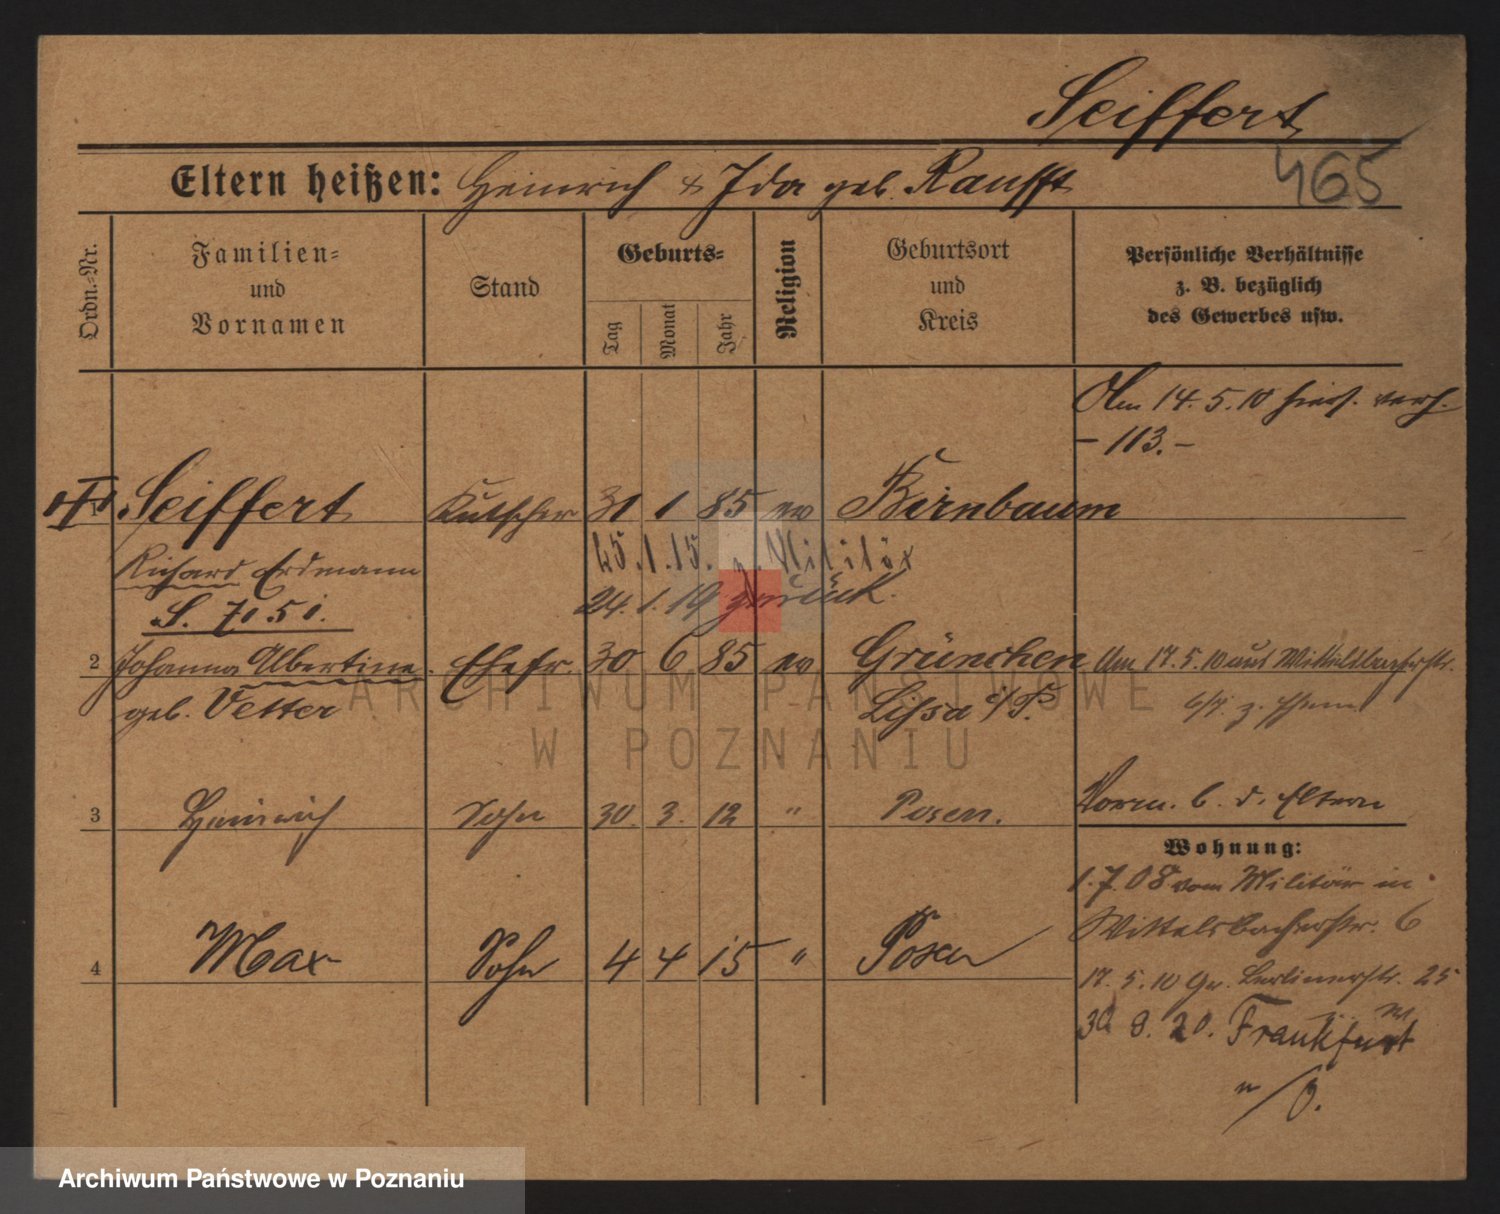 Seiffert
465
Eltern heißen: Heinrich & Ida geb. Raufft
Ordn.-Nr.
Familien-
und
Vornamen
Stand
Geburts-
Tag
Monat
Jahr
Religion
Geburtsort
und
Kreis
Persönliche Verhältnisse
z. B. bezüglich
des Gewerbes usw.
Am 14. 5. 10 hies. verh.
- 113. -
1 Seiffert Kutscher 31 1 85 ev Birnbaum
Richard Erdmann
25. 1. 15. z. Militär
24. 1. 19 zurück.
S. 7. 5
2 Johanna Albertine Ehefr. 30 6 85 ev Grünchen Am 17. 5. 10 aus Wittelsbacherstr.
geb. Vetter Lissa i/P.
6/7 z.
3 Heinrich Sohn 30. 3. 12 " Posen. Vorm. b. d. Eltern
Wohnung:
1. 7. 08 vom Militär in
Wittelsbacherstr. 6
4 Max Sohn 4 4 15 " Posen
17. 5. 10 Gr. Berlinerstr. 25
30 8. 20. n. Frankfurt
a/O.
ARCHIWUM PAŃSTWOWE
W POZNANIU
Archiwum Państwowe w Poznaniu